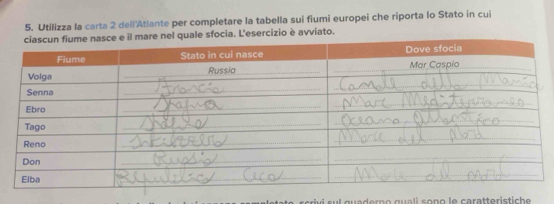 5. Utilizza la carta 2 dell'Atlante per completare la tabella sui fiumi europei che riporta lo Stato in cui
ciascun fiume nasce e il mare nel quale sfocia. L'esercizio è avviato.
Fiume Stato in cui nasce Dove sfocia
Volga Russia Mar Caspio
Senna Francia Canale della Manica
Ebro Spagna Mare Mediterraneo
Tago Oceano Atlantico
Reno Mare del Nord
Don Russia
Elba Repubblica Ceca Mare del Nord
scrivi sul quaderno quali sono le caratteristiche